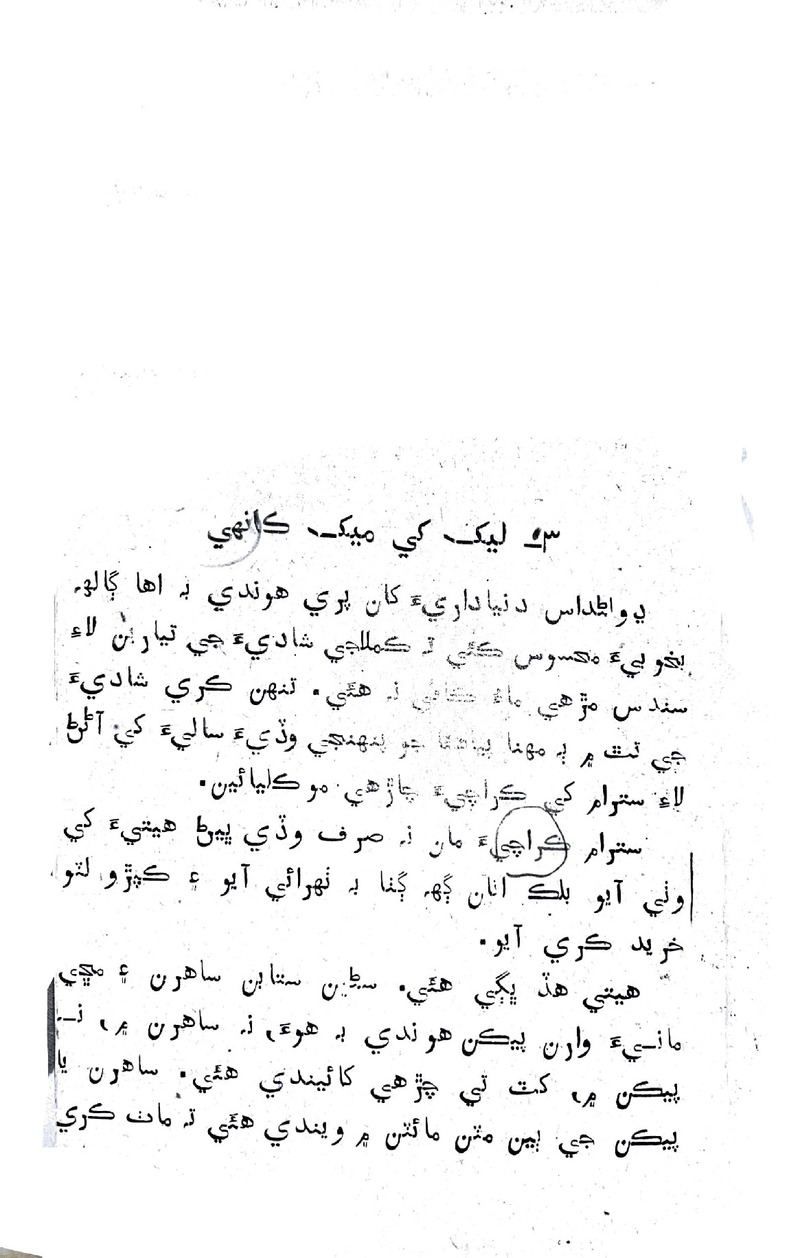 ۳۵ــ ليک کي ميک ڪانهي
ڊوانڊداس دنياداريءَ کان پري هوندي بہ اها ڳالهہ
بخوبيءَ محسوس ڪئي تہ ڪملاجي شاديءَ جي تيارين لاءِ
سندس مڙهي ماءُ ڪافي نہ هئي. تنهن ڪري شاديءَ
جي ٿٽ ۾ ٻہ مهنا پنهنجي وڏيءَ ساليءَ کي آڻڻ
لاءِ سترام کي ڪراچيءَ چاڙهي موڪليائين.
سترام ڪراچيءَ مان نہ صرف وڏي ڀيڻ هيتيءَ کي
وٺي آيو بلڪ اتان ڳهہ ڳٺا بہ ٺهرائي آيو ۽ ڪپڙو لٽو
خريد ڪري آيو.
هيتي هڏ ڀڳي هئي. سڻين ستابن ساهرن ۽ مڇي
مانيءَ وارن پيڪن هوندي بہ هوءَ، نہ ساهرن ۾، نہ
پيڪن ۾، کٽ تي چڙهي کائيندي هئي. ساهرن يا
پيڪن جي ٻين مٽن مائٽن ۾ ويندي هئي تہ مات ڪري